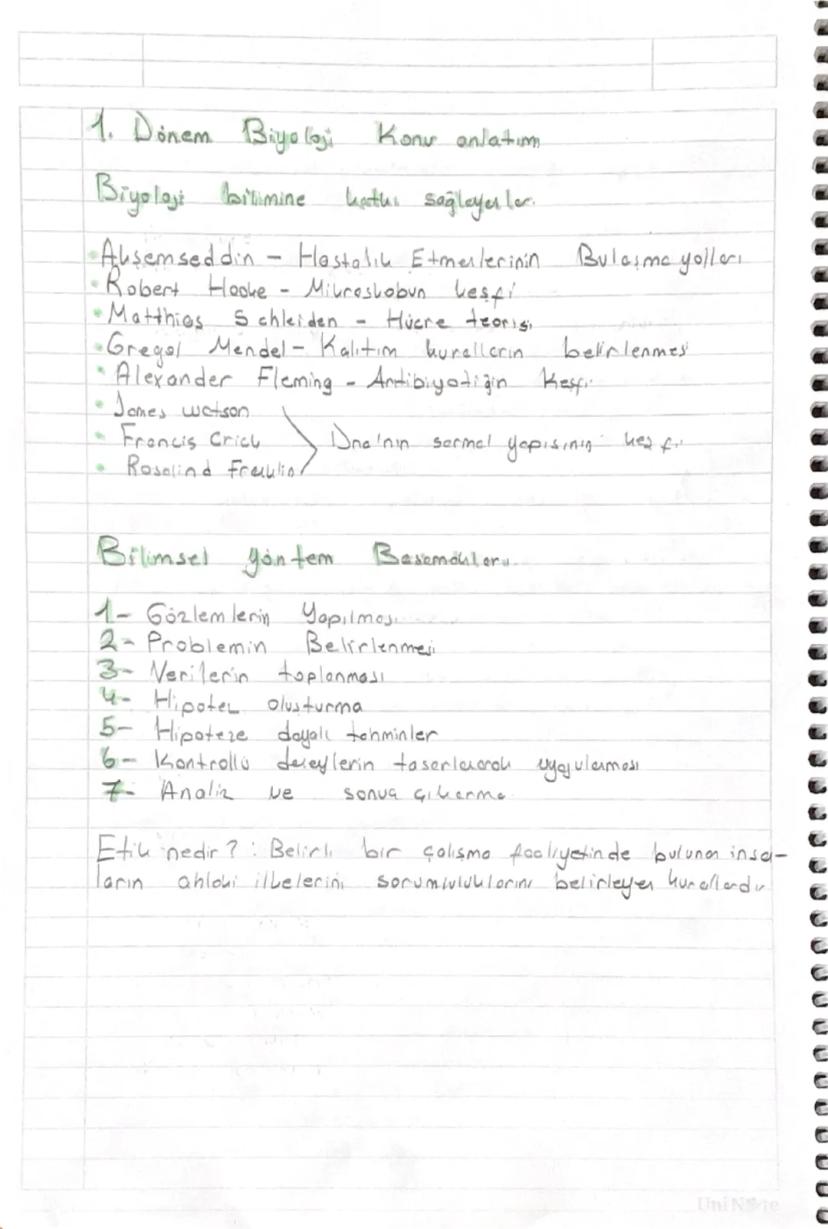 1. Dönem Biyoloji Konu anlatım
Biyoloji bilimine katkı sağlayanlar.
• Akşemseddin - Hastalık Etmenlerinin Bulaşma yolları
• Robert Hooke - Mikroskobun keşfi
• Matthias Schleiden - Hücre teorisi
• Gregol Mendel - Kalıtım kuralların belirlenmesi
• Alexander Fleming - Antibiyotiğin Keşfi
• James watson
• Francis Crick Dna'nın sarmal yapısının keşfi
• Rosalind Franklin
Bilimsel yöntem Basamakları
1- Gözlemlerin Yapılması
2- Problemin Belirlenmesi
3- Verilerin toplanması
4- Hipotez oluşturma
5- Hipoteze dayalı tahminler
6- Kontrollü deneylerin tasarlanarak uygulanması
7- Analiz ve sonuç çıkarma
Etik nedir? : Belirli bir çalışma faaliyetinde bulunan insan-
ların ahlaki ilkelerini sorumluluklarını belirleyen kurallardır
UniNote